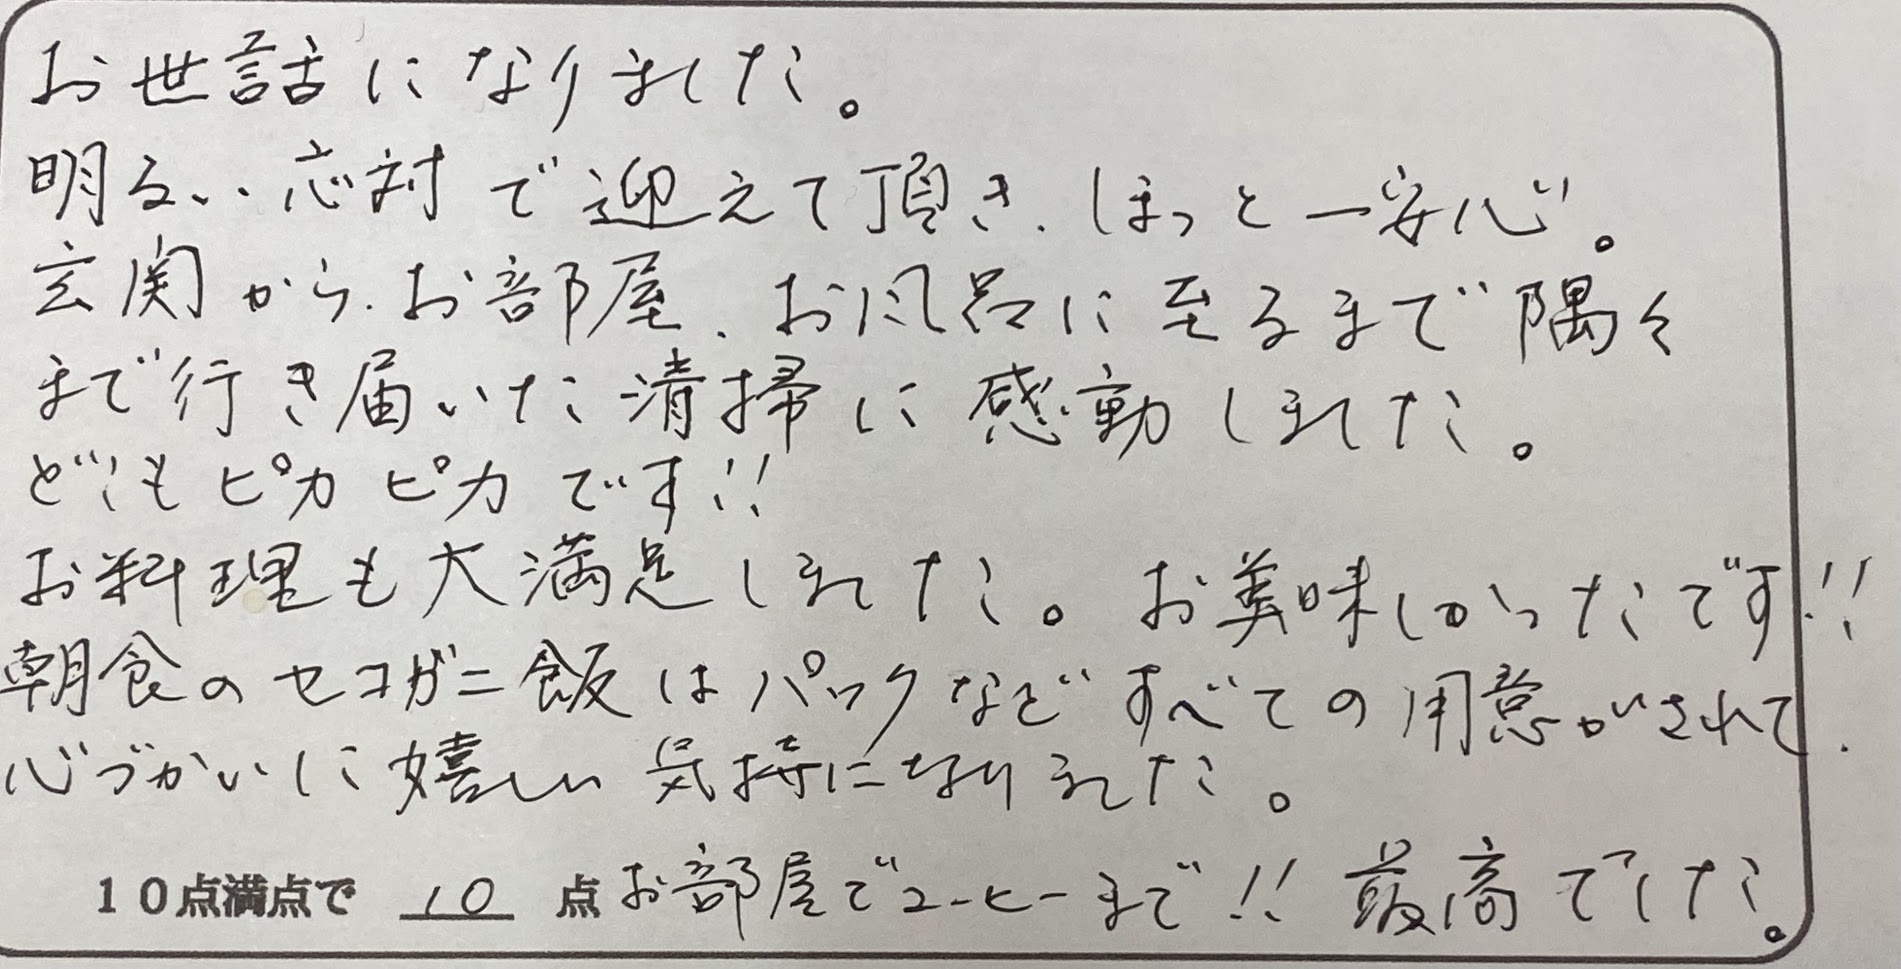 お世話になりました。
明るい応対で迎えて頂き、ほっと一安心。
玄関から、お部屋、お風呂に至るまで隅々
まで行き届いた清掃に感動しました。
どこもピカピカです!!
お料理も大満足しました。お美味しかったです!!
朝食のセコガニ飯はパックなどすべての用意がされて、
心づかいに嬉しい気持になりました。
10点満点で 10 点 お部屋でコーヒーまで!! 最高でした。